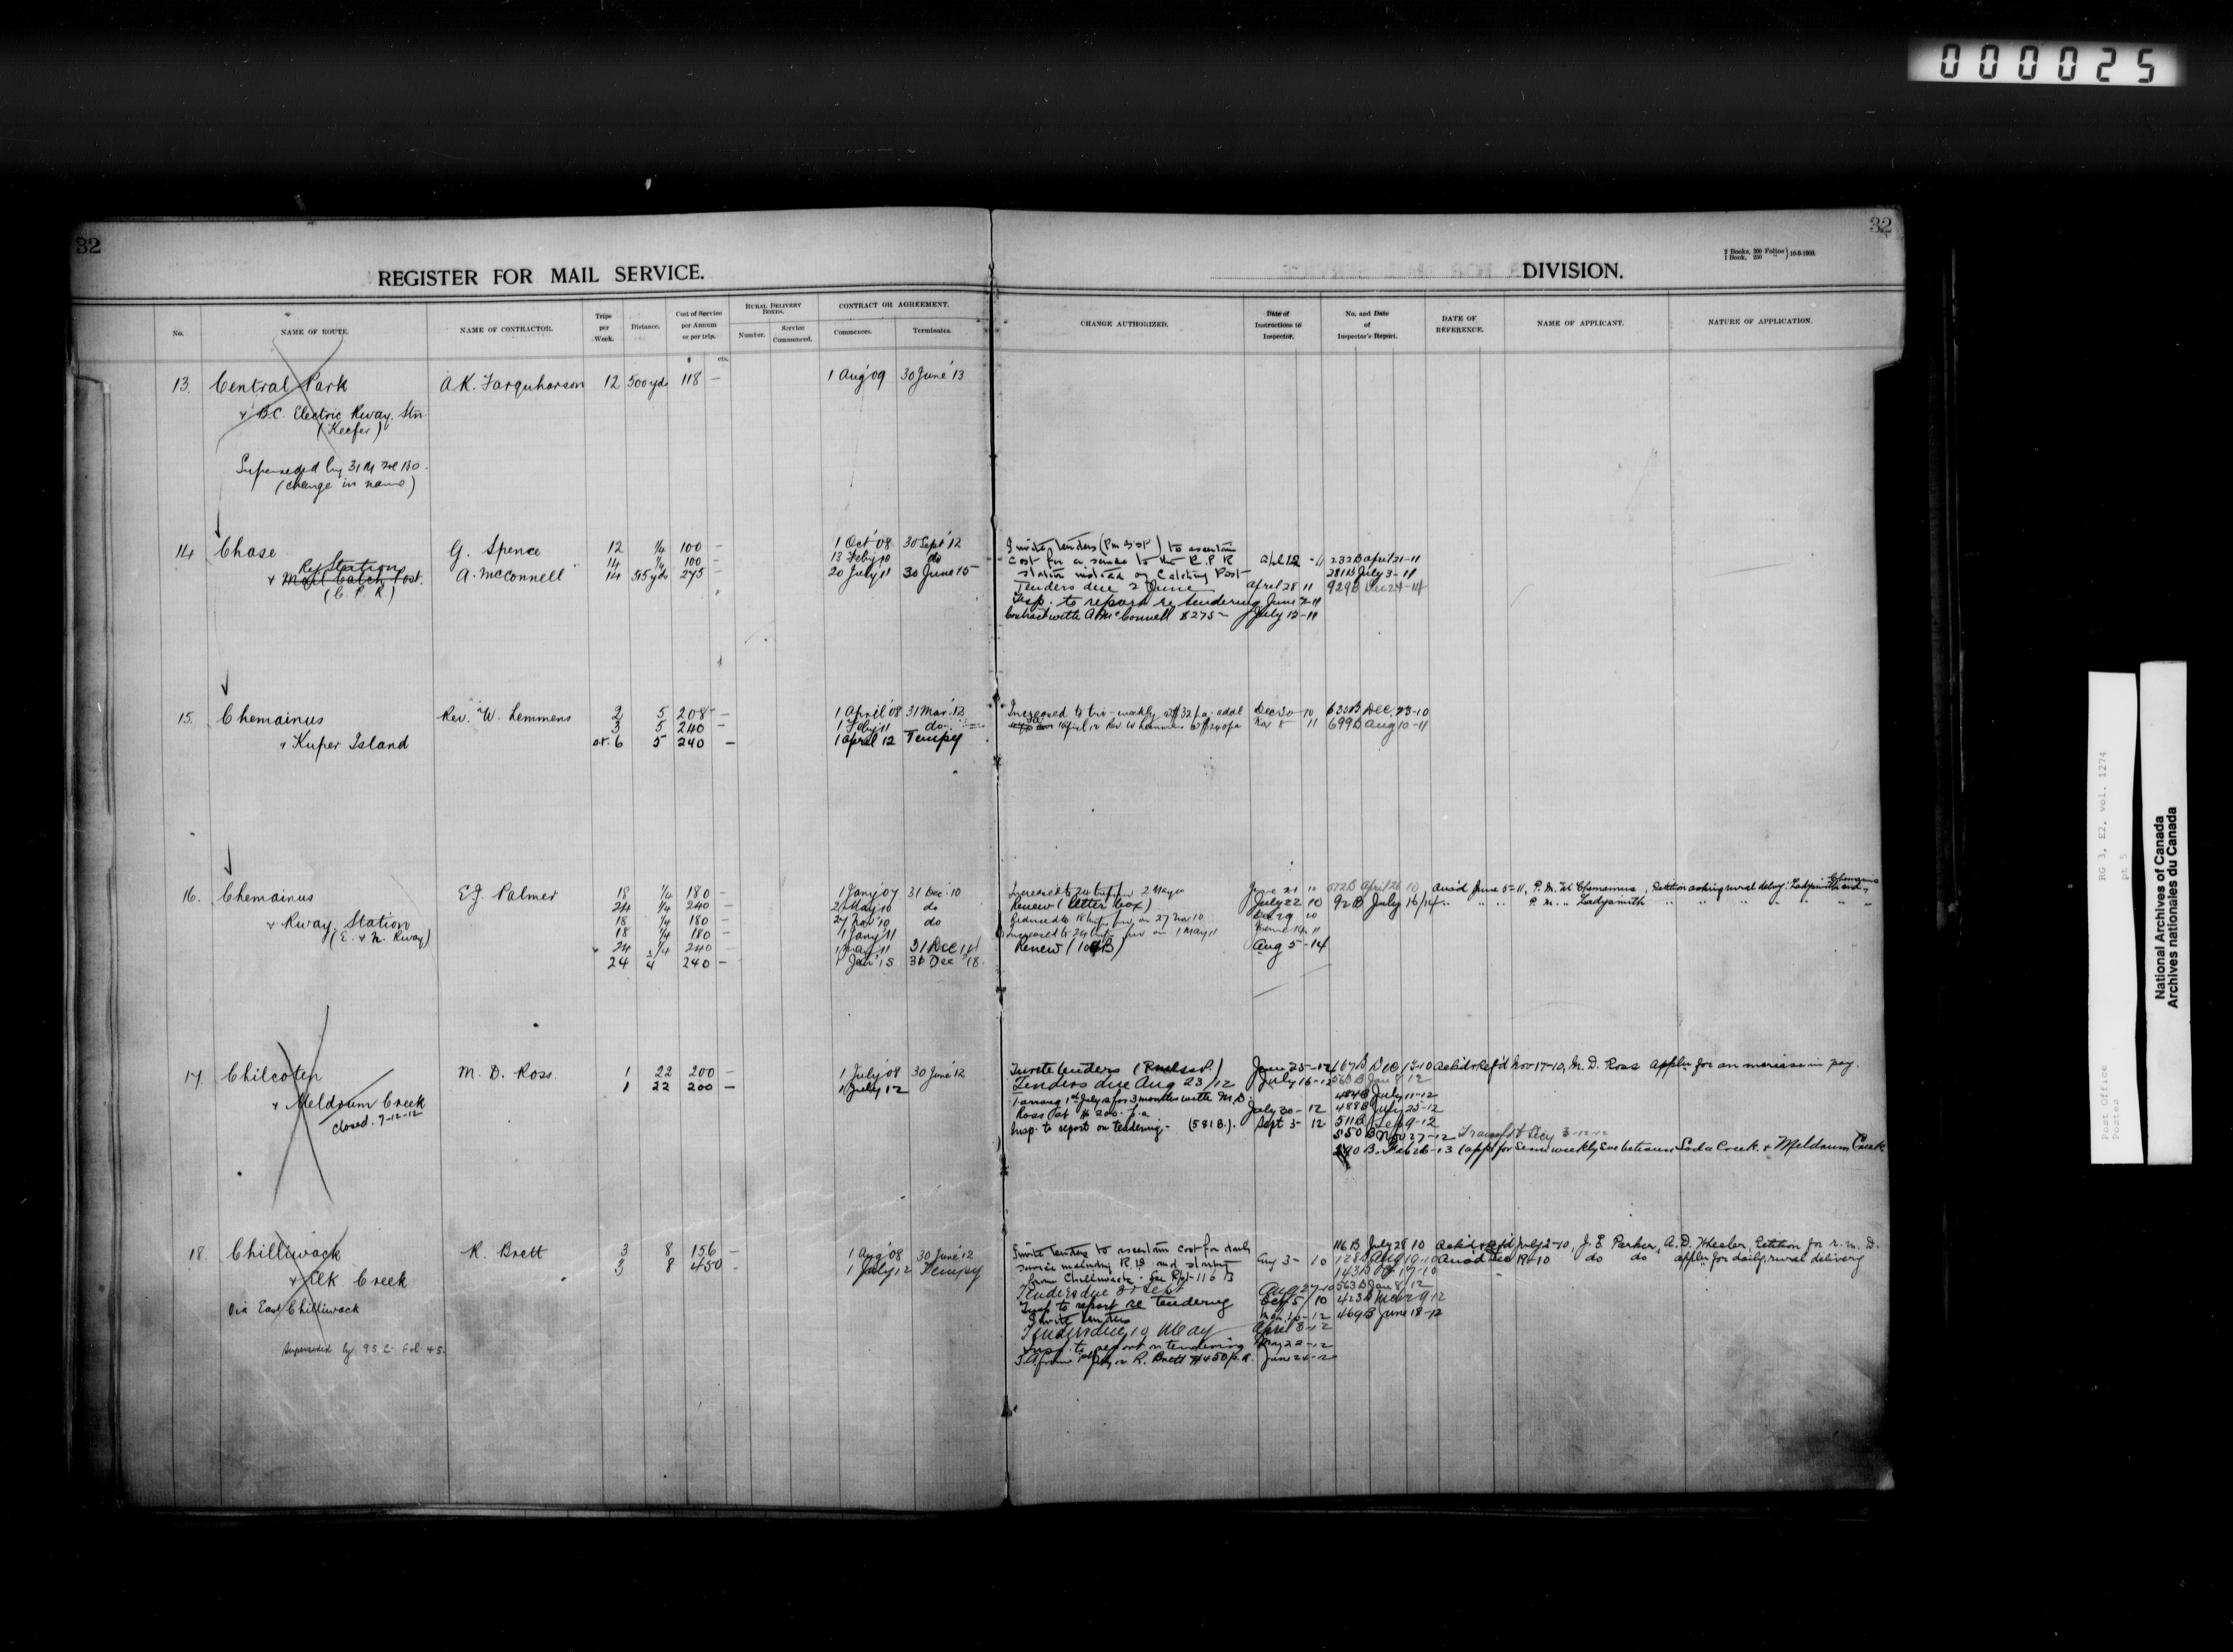 000025
32
32
2 Books, 300 Folios
1 Book, 250 " } 10-8-1909.
REGISTER FOR MAIL SERVICE.
DIVISION.
No.
NAME OF ROUTE.
NAME OF CONTRACTOR.
Trips per Week.
Distance.
Cost of Service per Annum or per trip.
RURAL DELIVERY BOXES.
Number.
Service Commenced.
CONTRACT OR AGREEMENT.
Commences.
Terminates.
CHANGE AUTHORIZED.
Date of Instructions to Inspector.
No. and Date of Inspector's Report.
DATE OF REFERENCE.
NAME OF APPLICANT.
NATURE OF APPLICATION.
$ cts.
13. Central Park A.K. Farquharson 12 500 yds 118 – 1 Aug '09 30 June '13
& B.C. Electric Rway. Stn.
(Keefer)
Superseded by 31 M Fol 130
(change in name)
14 Chase G. Spence 12 1/4 100 – 1 Oct '08 30 Sept '12
14 1/4 100 – 13 Feby 10 do
Ry Station
& Mail Catch Post. A. McConnell 14 515 yds 275 – 20 July 11 30 June 15
(C. P. R.)
Invite tenders (Pm & SP) to ascertain
cost for a service to the C.P.R april 12 - 11 232B april 21-11
station instead of Catching Post 281B July 3-11
Tenders due 2 June april 28 11 929B Dec 24-14
Insp. to report re tendering June 7-11
Contract with A McConnell $275 – July 12-11
15. Chemainus Rev. W. Lemmens 2 5 208 – 1 April '08 31 Mar. 12
3 5 240 – 1 Feby 11 do
& Kuper Island 6 5 240 – 1 april 12 Tempy
Increased to tri-weekly at $32 p.a. addl Dec 30-10 633B Dec. 23-10
1 April 12 Rev W Lemmens $240 pa Nov 8 11 699B Aug 10-11
16. Chemainus E.J. Palmer 18 1/4 180 – 1 Jany '07 31 Dec '10
24 1/4 240 – 2 May 10 do
& Rway. Station 18 1/4 180 – 27 Nov '10 do
(E. & N. Rway) 18 1/4 180 – 1 Jany '11
24 1/4 240 – 1 May 11 31 Dec 14
24 1/4 240 – 1 Jan '15 31 Dec '18
Increased to 24 trips from 2 May 10 June 21 10 572B April 26 10
Renew (letter box) July 22 10 92B July 16/14
Reduced to 18 trips from 27 Nov 10 Dec 29 10
Increased to 24 trips from 1 May 11 June 14 11
Renew (104B) Aug 5-14
June 5-11, P.M. at Chemainus, Petition asking rural delivy. Ladysmith and Chemainus
" " " P.M. " Ladysmith " " " " " "
17 Chilcoten M. D. Ross 1 22 200 – 1 July '08 30 June '12
& Meldrum Creek 1 22 200 – 1 July 12
closed. 7-12-12
Invite tenders June 25-12 167B Dec 15-10 Nov-17-10, M. D. Ross appln for an increase in pay.
Tenders due Aug 23/12 July 16-12 563B Jan 8/12
arrang 1st July 12 for 3 months with M.D. 484B July 11-12
Ross at $200. p.a July 30-12 488B July 25-12
Insp. to report on tendering – (581B). Sept 3-12 511B Sep 9-12
550B Nov 27-12
590B. Feb 26-13 (app for Semi weekly Sve between Soda Creek & Meldrum Creek
18. Chilliwack R. Brett 3 8 156 – 1 Aug '08 30 June '12
& Elk Creek 3 8 450 – 1 July 12 Tempy
Via East Chilliwack
Superseded by 95 C Fol. 45.
Invite tenders to ascertain cost for daily 116B July 28 10 July 2-10, J. E. Parker, A.D. Wheeler, Petition for r. m. D.
service including R.D. and starting Aug 3- 10 128B Aug 19-10 Dec 19-10 do do appln for daily rural delivery
from Chilliwack. See Rpt 116B 143B
Tenders due Sept Aug 27-10 563B Jan 8/12
Insp to report re tendering Oct 5/10 423B Mar 29-12
Invite tenders 469B June 18-12
Tenders due 19 May April 8-12
Insp. to report on tendering May 22-12
from 1st July 12 R. Brett $450 p.a. June 24-12
Post Office
Postes
RG 3, E2, vol. 1274
pt 5
National Archives of Canada
Archives nationales du Canada